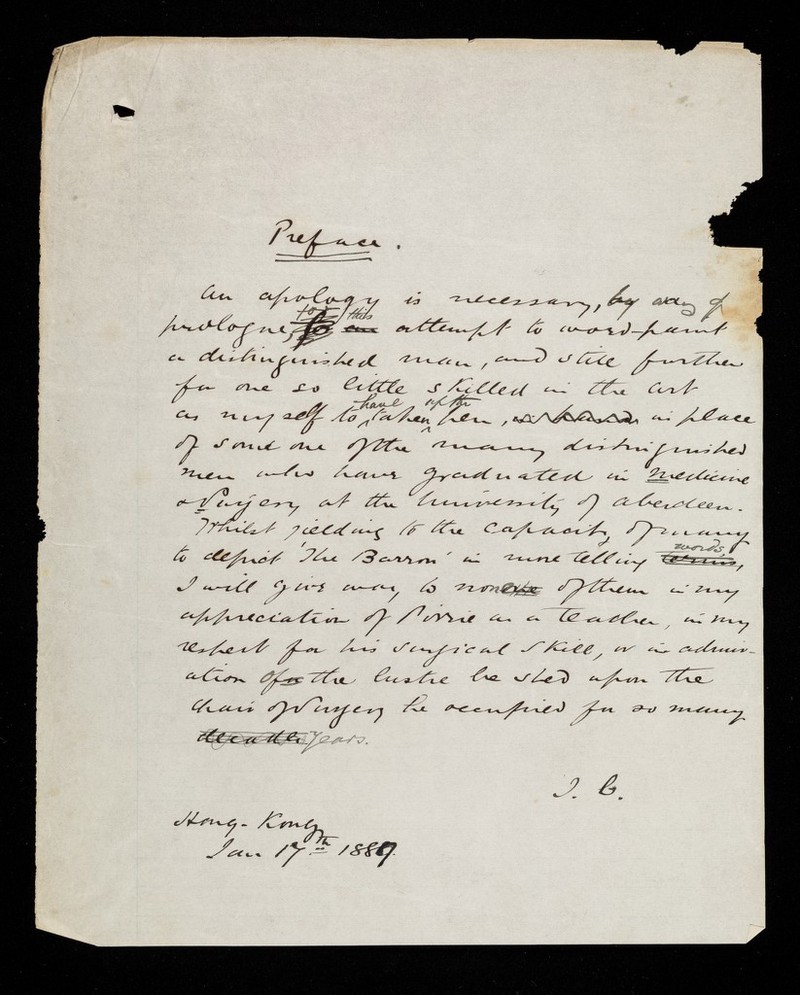 Preface.
An apology is necessary, by way of
prologue, for this attempt to word-paint
a distinguished man, and still further
for one so little skilled in the art
as myself to have taken up the pen, in place
of some one of the many distinguished
men who have graduated in Medicine
& Surgery at the University of Aberdeen.
Whilst yielding to the capacity of many
to depict 'The Barron' in more telling words,
I will give way to none of them in my
appreciation of Pirrie as a teacher, in my
respect for his surgical skill, or in admir-
ation of the lustre he shed upon the
chair of Surgery he occupied for so many
years.
J. C.
Hong-Kong
Jan 17th 1889.